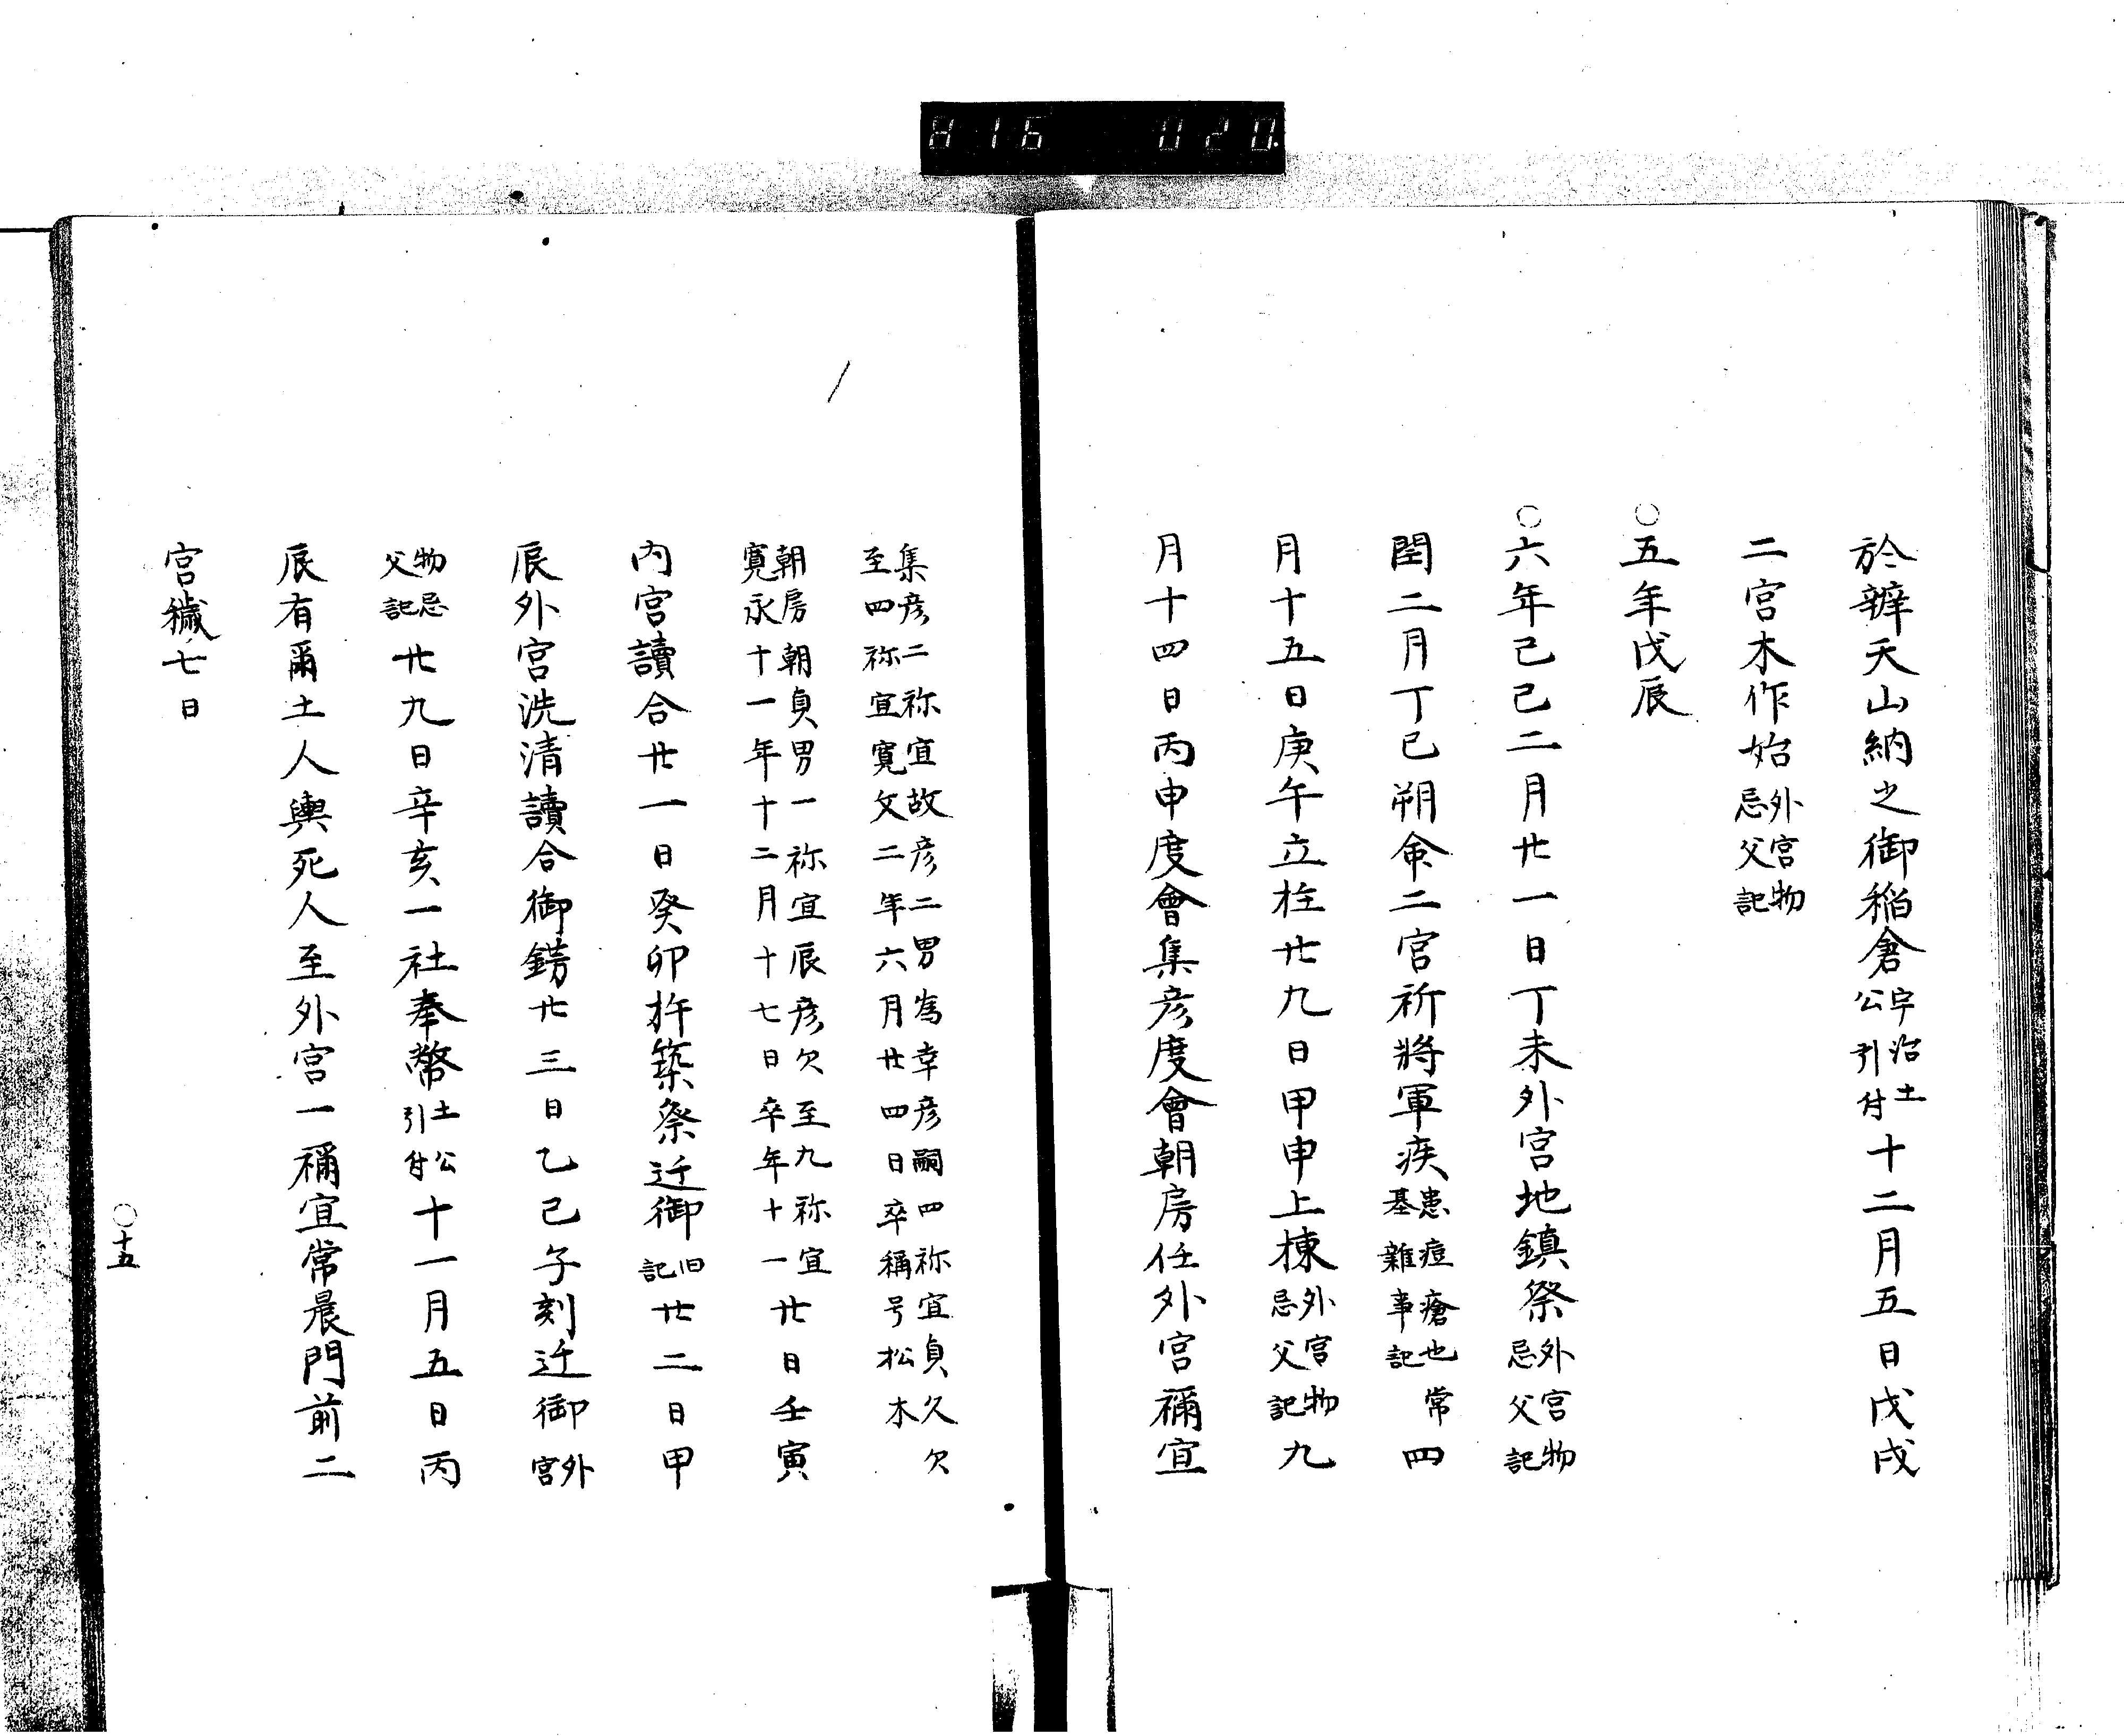 816 020.
於辨天山納之御稲倉宇治土公引付十二月五日戊戌
二宮木作始外宮物忌父記
○五年戊辰
○六年己巳二月廿一日丁未外宮地鎮祭外宮物忌父記
閏二月丁巳朔命二宮祈將軍疾患痘瘡也常基雜事記四
月十五日庚午立柱廿九日甲申上棟外宮物忌父記九
月十四日丙申度會集彦度會朝房任外宮禰宜
集彦二祢宜故彦二男為幸彦嗣四祢宜貞久欠
至四祢宜寛文二年六月廿四日卒稱号松木
朝房朝貞男一祢宜辰彦欠至九祢宜
寛永十一年十二月十七日卒年十一廿日壬寅
内宮讀合廿一日癸卯杵築祭迁御旧記廿二日甲
辰外宮洗清讀合御餝廿三日乙巳子刻迁御外宮
物忌父記廿九日辛亥一社奉幣土公引付十一月五日丙
辰有爾土人輿死人至外宮一禰宜常晨門前二
宮穢七日
○十五